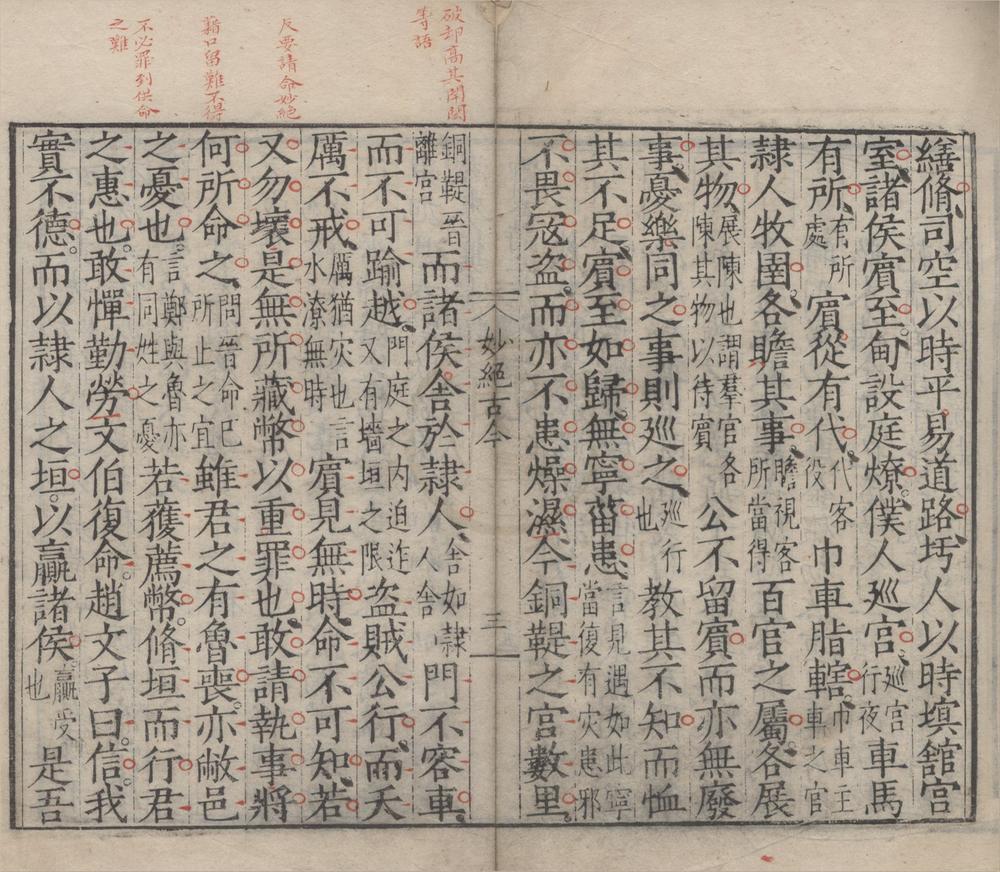 繕脩司空以時平易道路圬人以時塓舘宫
室諸侯賓至甸設庭燎僕人巡宫巡宫行夜車馬
有所有所處賓從有代代客役巾車脂轄巾車主車之官
隷人牧圉各瞻其事瞻視客所當得百官之屬各展
其物展陳也謂羣官各陳其物以待賓公不留賓而亦無廢
事憂樂同之事則巡之巡行也教其不知而恤
其不足賓至如歸無寧菑患言見遇如此寧當復有灾患邪
不畏冦盗而亦不患燥濕今銅鞮之宫數里
妙絶古今
三
銅鞮晉離宫而諸侯舍於隷人舍如隷人舍門不容車
而不可踰越門庭之内迫迮又有墻垣之限盗賊公行而夭
厲不戒厲猶灾也言水潦無時賓見無時命不可知若
又勿壞是無所藏幣以重罪也敢請執事將
何所命之問晉命已所止之宜雖君之有魯喪亦敝邑
之憂也言鄭與魯亦有同姓之憂若獲薦幣脩垣而行君
之惠也敢憚勤勞文伯復命趙文子曰信我
實不德而以隷人之垣以贏諸侯贏受也是吾
破却高其閈閎
等語
反要請命妙絶
藉口留難不得
不必罪到供命
之難